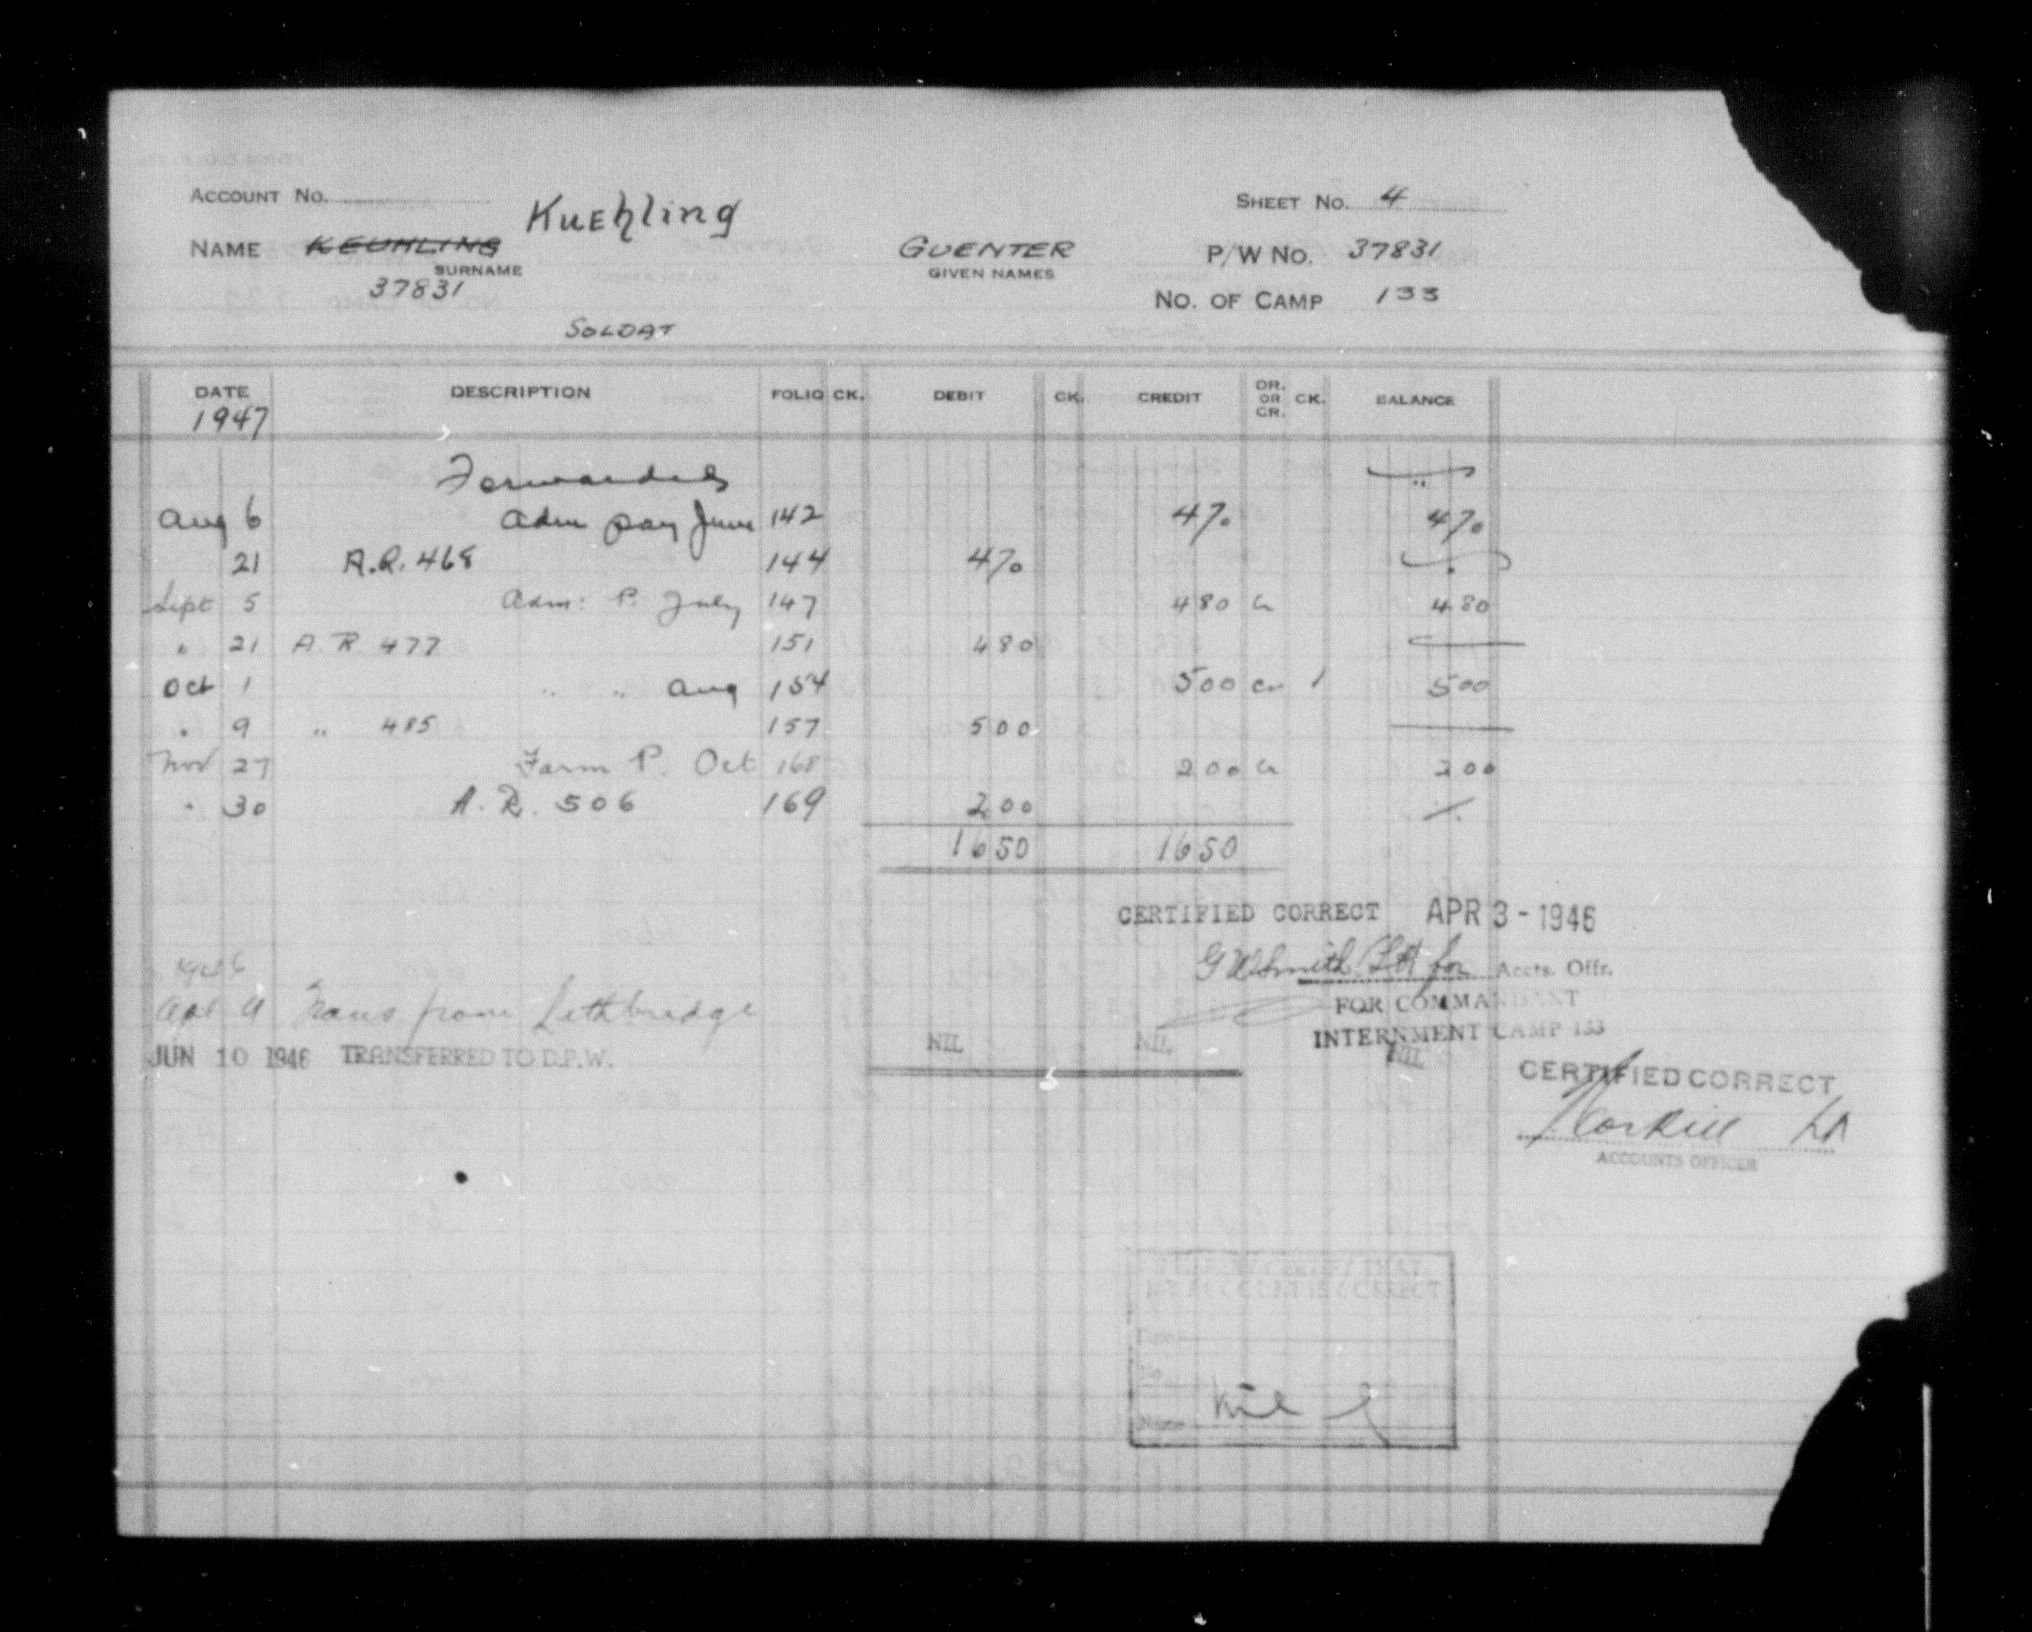 ACCOUNT NO.
KUEHLING
SHEET NO. 4
NAME KEUHLING GUENTER P/W NO. 37831
SURNAME GIVEN NAMES
37831 NO. OF CAMP 133
SOLDAT
DATE DESCRIPTION FOLIO CK. DEBIT CK. CREDIT DR. OR CR. CK. BALANCE
1947
Forwarded
Aug 6 Adm pay June 142 4 70 4 70
21 A.R. 468 144 4 70
Sept 5 Adm: P. July 147 4 80 Cr 4 80
" 21 A R 477 151 4 80
Oct 1 " " Aug 154 5 00 Cr 1 5 00
" 9 " 485 157 5 00
Nov 27 Farm P. Oct 168 2 00 Cr 2 00
" 30 A. R. 506 169 2 00
16 50 16 50
CERTIFIED CORRECT APR 3 - 1946
G W Smith for Accts. Offr.
1946
FOR COMMANDANT
Apl 4 Trans from Lethbridge
INTERNMENT CAMP 133
JUN 10 1946 TRANSFERRED TO D.P.W. NIL NIL NIL
CERTIFIED CORRECT
ACCOUNTS OFFICER
I HEREBY CERTIFY THAT
MY ACCOUNT IS CORRECT
No
Name